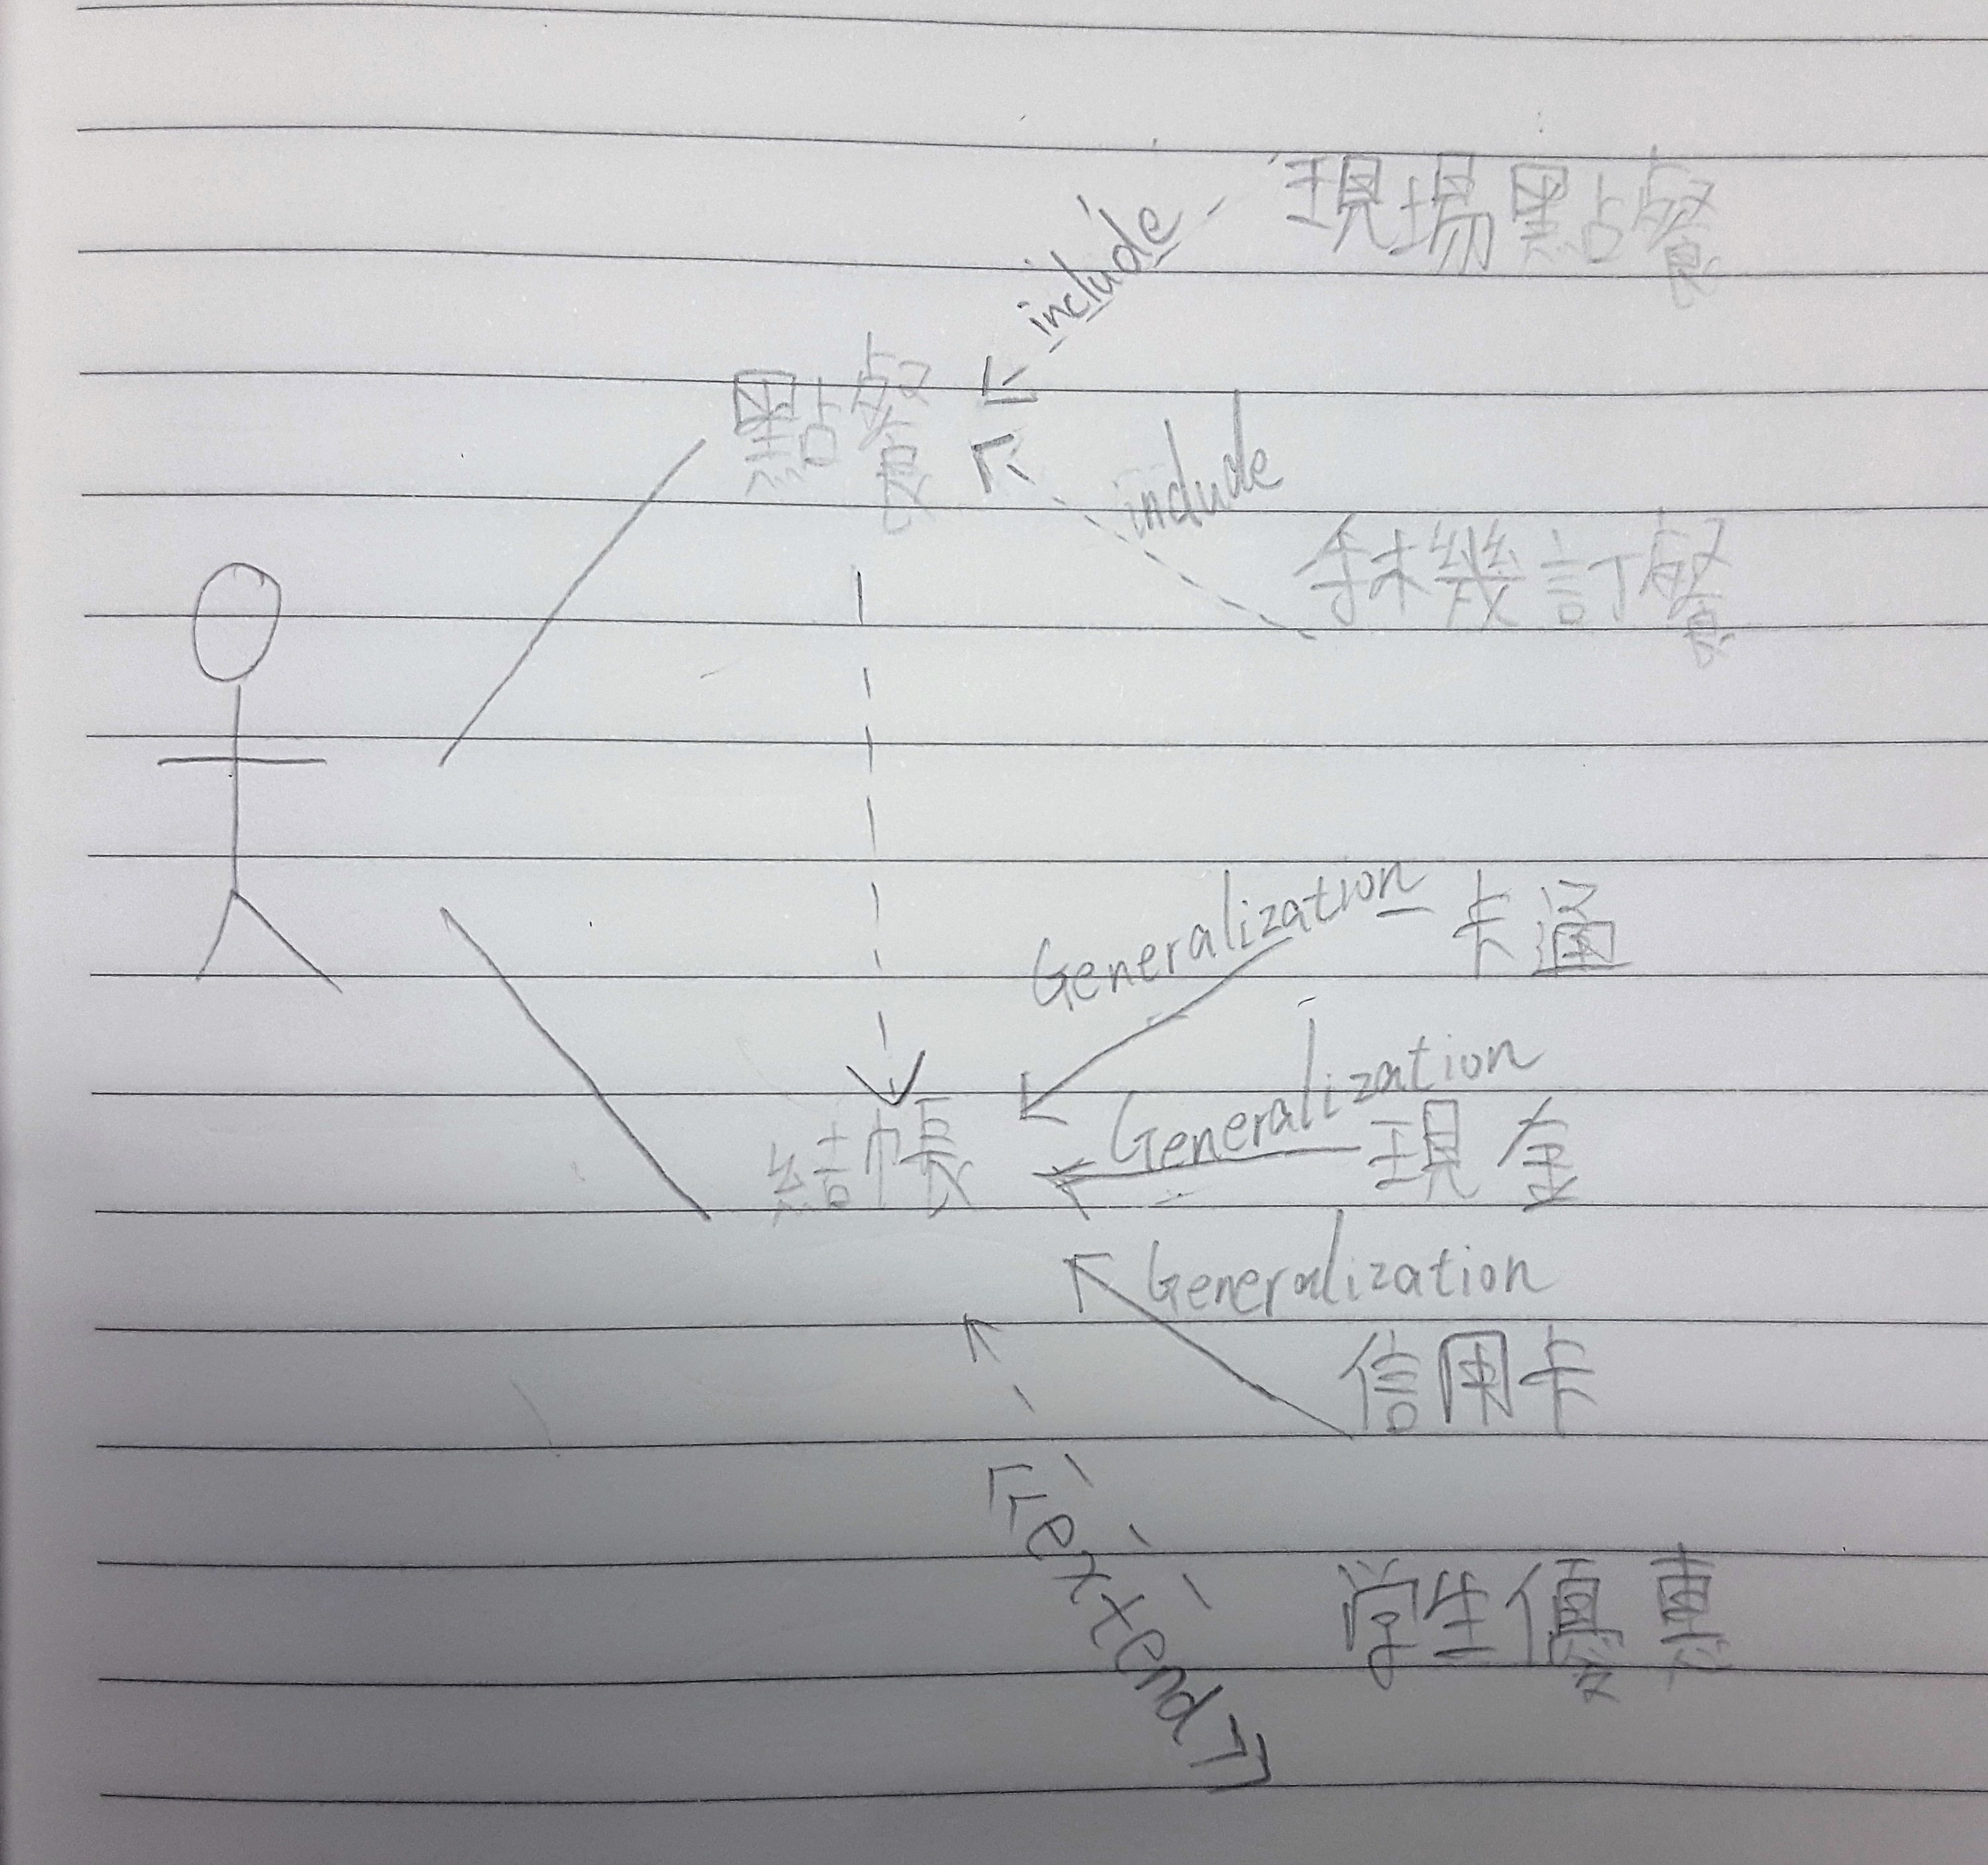 現場點餐
include
點餐
include
手機訂餐
Generalization
卡通
Generalization
結帳
現金
Generalization
信用卡
『extend』
学生優惠